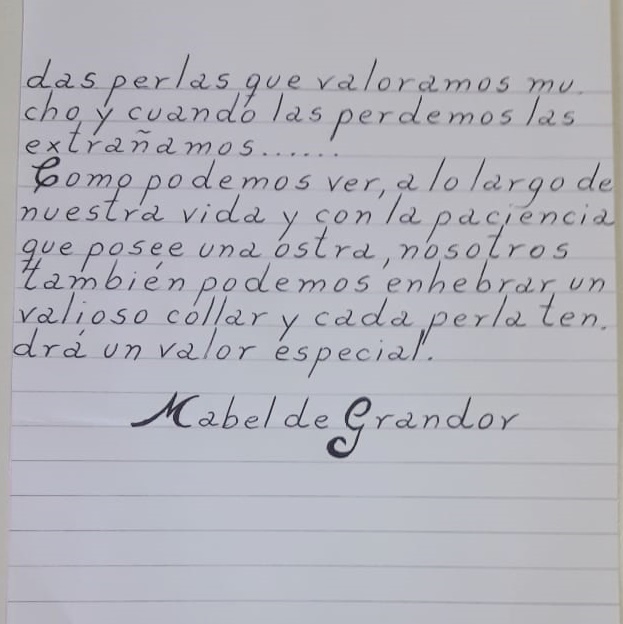 das perlas que valoramos mu.
cho y cuando las perdemos las
extrañamos......
Como podemos ver, a lo largo de
nuestra vida y con la paciencia
que posee una ostra, nosotros
también podemos enhebrar un
valioso collar y cada perla ten.
drá un valor especial.
Mabel de Grandor